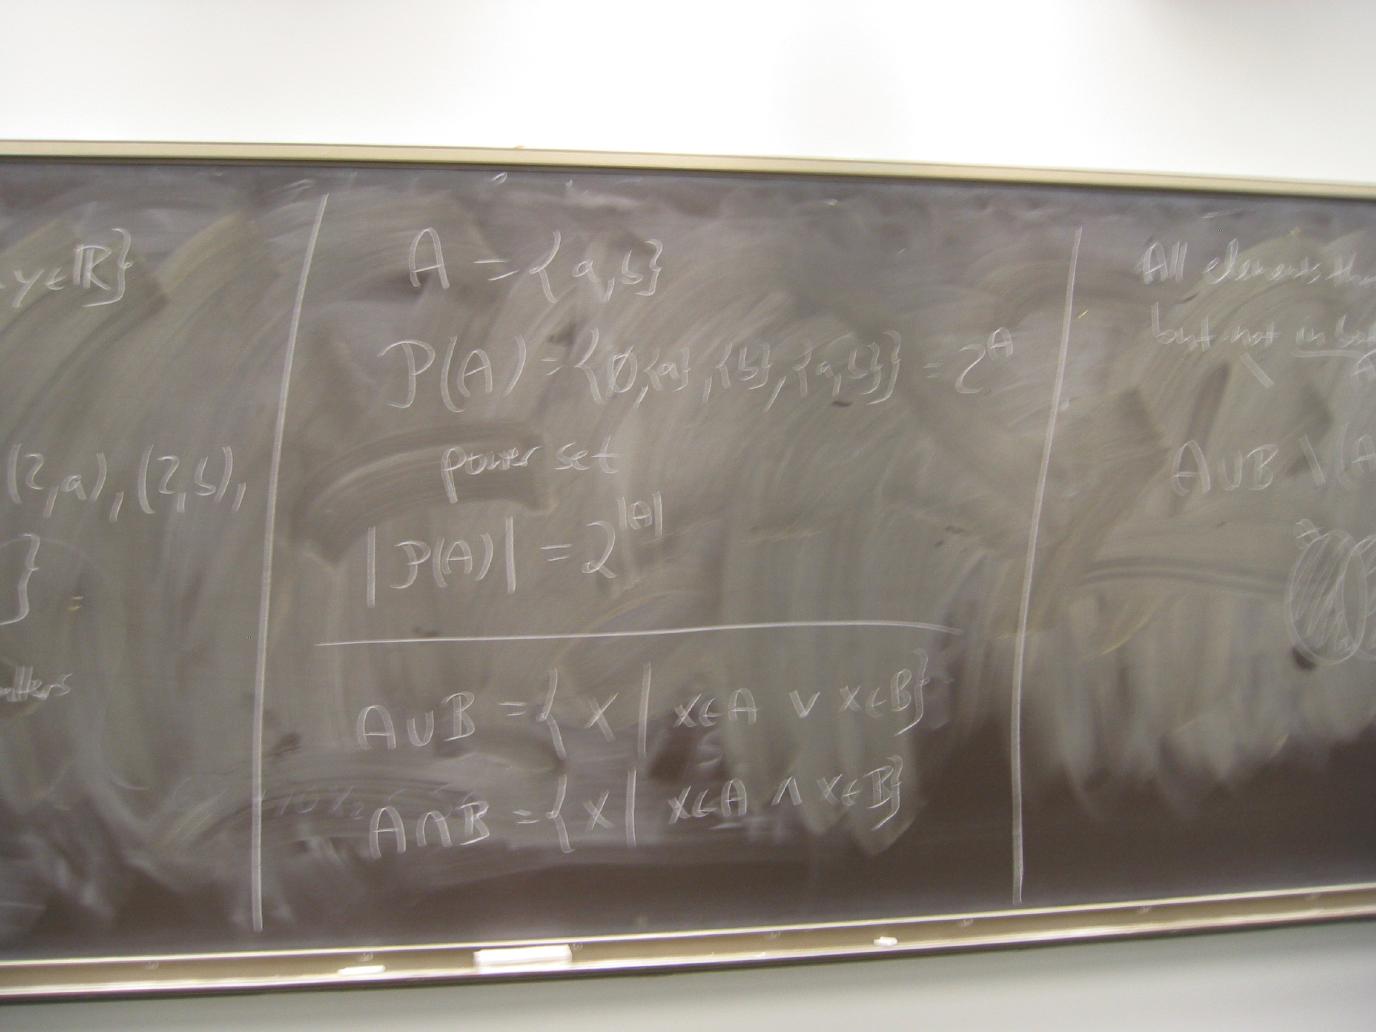 y∈ℝ}
(2,a), (2,b),
}
A = {a,b}
P(A) = {∅,{a},{b},{a,b}} = 2^A
power set
|P(A)| = 2^|A|
A∪B = {x | x∈A ∨ x∈B}
A∩B = {x | x∈A ∧ x∈B}
All elements
but not in
A∪B \ (A